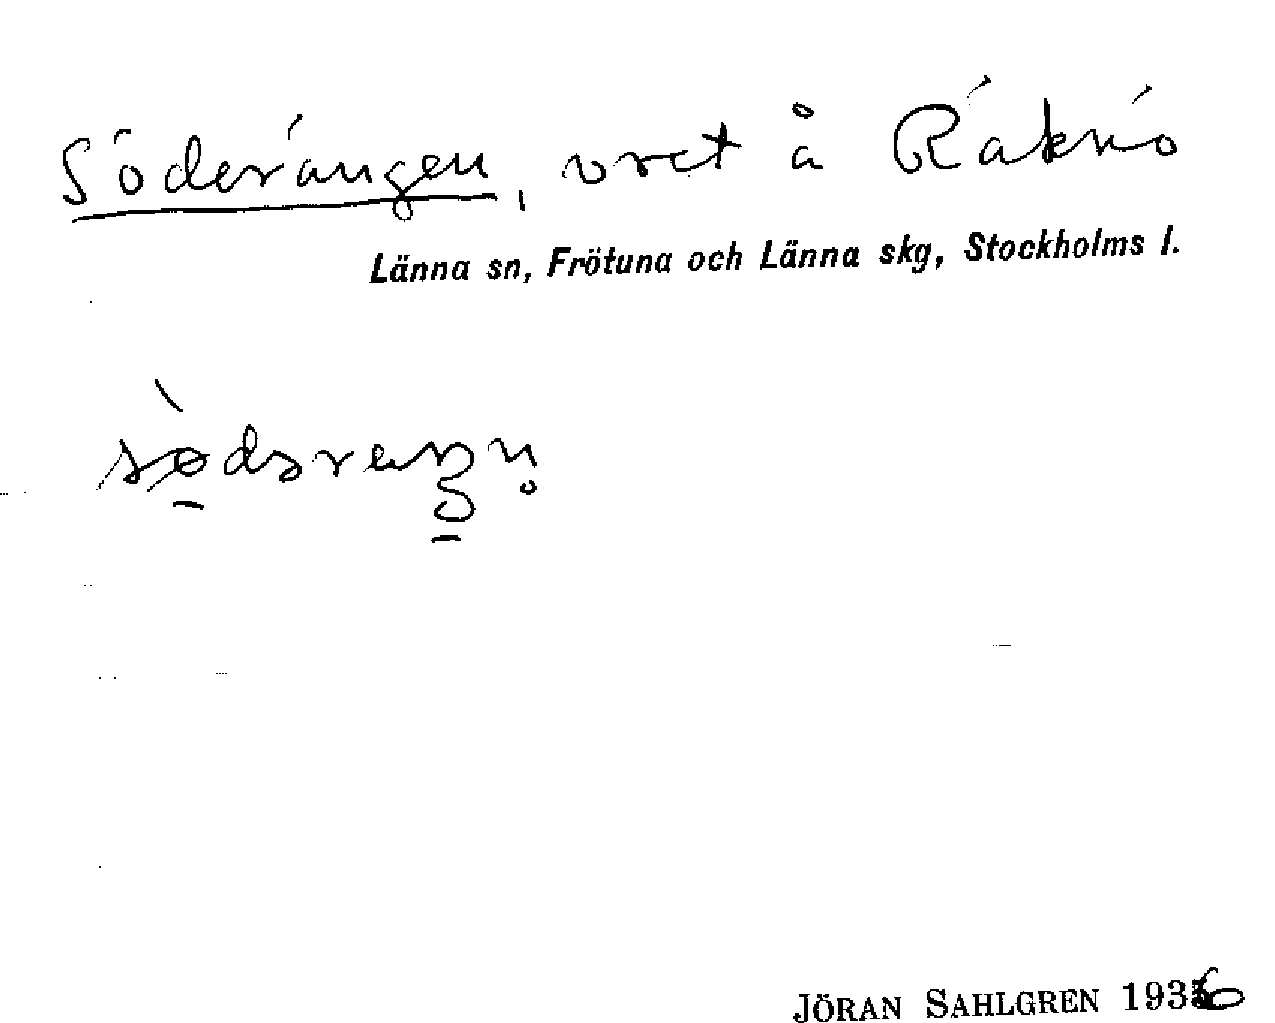 Söderängen, vret å Räknö
Länna sn, Frötuna och Länna skg, Stockholms l.
JÖRAN SAHLGREN 1936